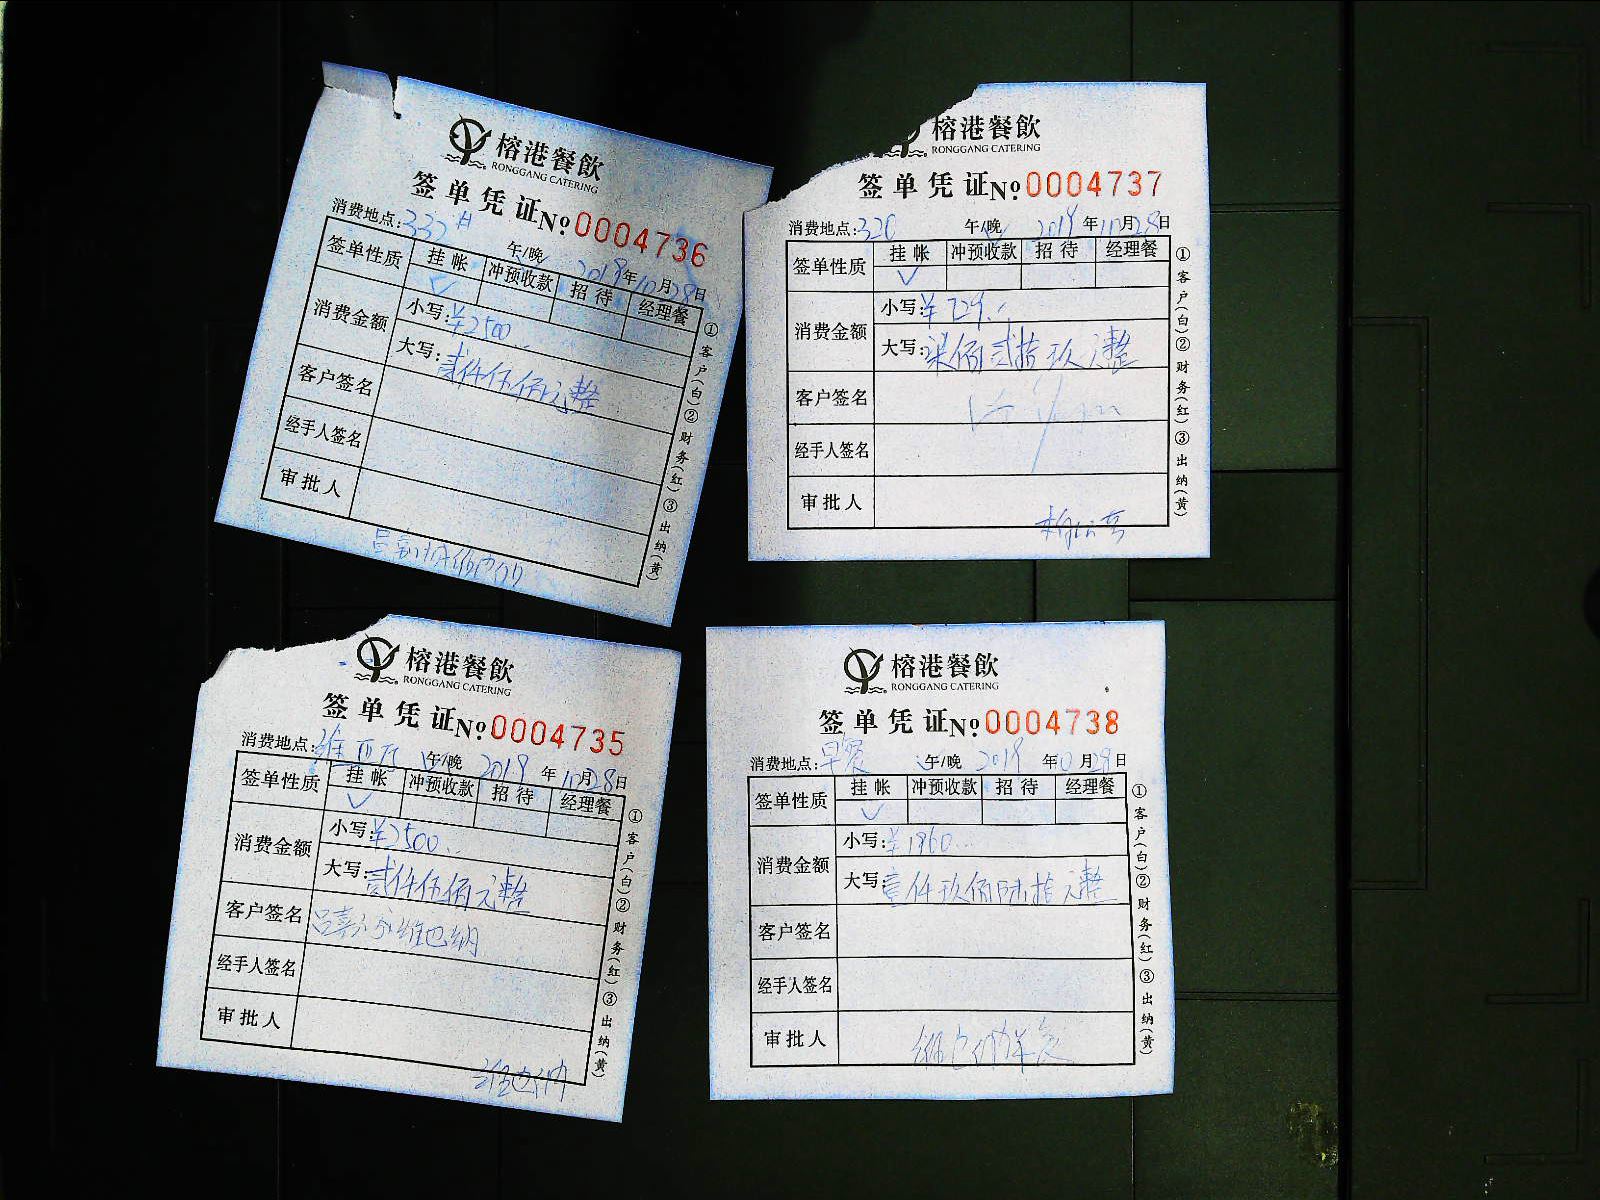 榕港餐飲
RONGGANG CATERING
签单凭证№0004736
消费地点:333 午/晚 2019年10月28日
签单性质 挂帐 冲预收款 招待 经理餐
✓
消费金额 小写:¥2500
大写:贰仟伍佰元整
客户签名
经手人签名
审批人
①客户(白)②财务(红)③出纳(黄)
榕港餐飲
RONGGANG CATERING
签单凭证№0004737
消费地点:320 午/晚 2019年10月28日
签单性质 挂帐 冲预收款 招待 经理餐
✓
消费金额 小写:¥729
大写:柒佰贰拾玖元整
客户签名
经手人签名
审批人
①客户(白)②财务(红)③出纳(黄)
榕港餐飲
RONGGANG CATERING
签单凭证№0004735
消费地点: 午/晚 2019年10月28日
签单性质 挂帐 冲预收款 招待 经理餐
✓
消费金额 小写:¥2500
大写:贰仟伍佰元整
客户签名 维也纳
经手人签名
审批人
维也纳
①客户(白)②财务(红)③出纳(黄)
榕港餐飲
RONGGANG CATERING
签单凭证№0004738
消费地点:早餐 午/晚 2019年10月29日
签单性质 挂帐 冲预收款 招待 经理餐
✓
消费金额 小写:¥1960
大写:壹仟玖佰陆拾元整
客户签名
经手人签名
审批人 维也纳早餐
①客户(白)②财务(红)③出纳(黄)